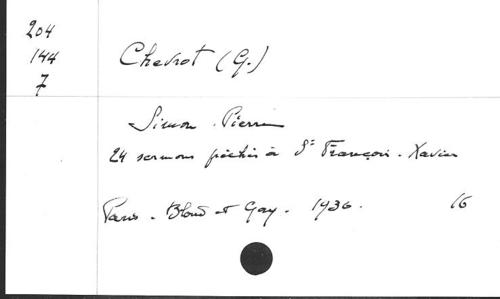 204
144
7
Chevrot (G.)
Simon-Pierre
24 sermons prêchés à St François-Xavier
Paris - Bloud et Gay - 1936. 16